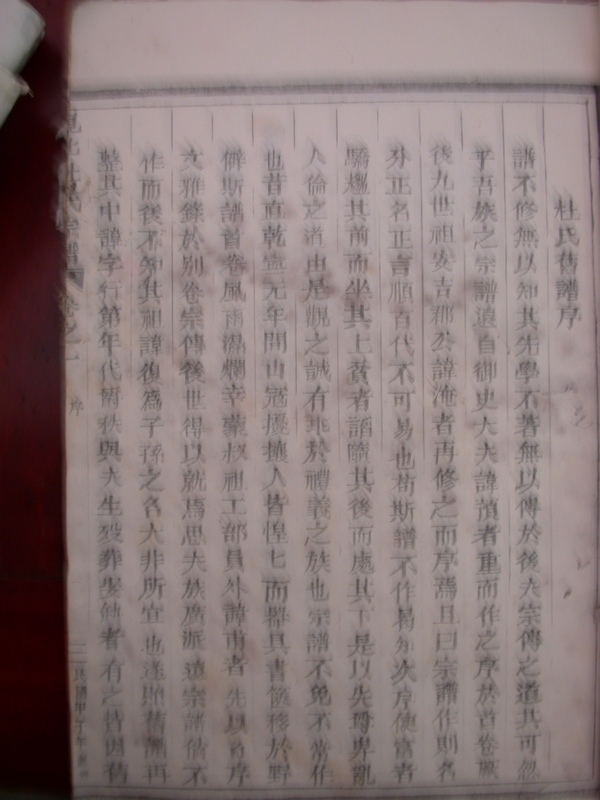 杜氏舊譜序
譜不修無以知其先學不著無以傳於後夫宗傳之道其可忽
乎吾族之宗譜遠自御史大夫諱 者重而作之序於首卷厥
後九世祖安吉郡公諱淹者再修之而序焉且曰宗譜作則名
分正名正言順百代不可易也苟斯譜不作易知次序使富者
驕 其前而坐其上貧者諂 其後而處其下是以先尊卑亂
人倫之者由是觀之誠有 於禮義之族也宗譜不免不常作
也昔直乾 元年間山寇擾攘人皆惶七而 其書箧移於野
僻斯譜首卷風雨 爛幸蒙叔祖工部員外諱甫者先以 序
文雅錄於别卷宗傳後世得以就焉思夫族廣派遠宗譜 不
作而後不知其祖諱復為子孫之名大非所宜也遂照舊 再
整其中諱字行第年代 秩與夫生歿葬娶 者有之皆因舊
杜氏宗譜 卷之一 序
民國甲子年